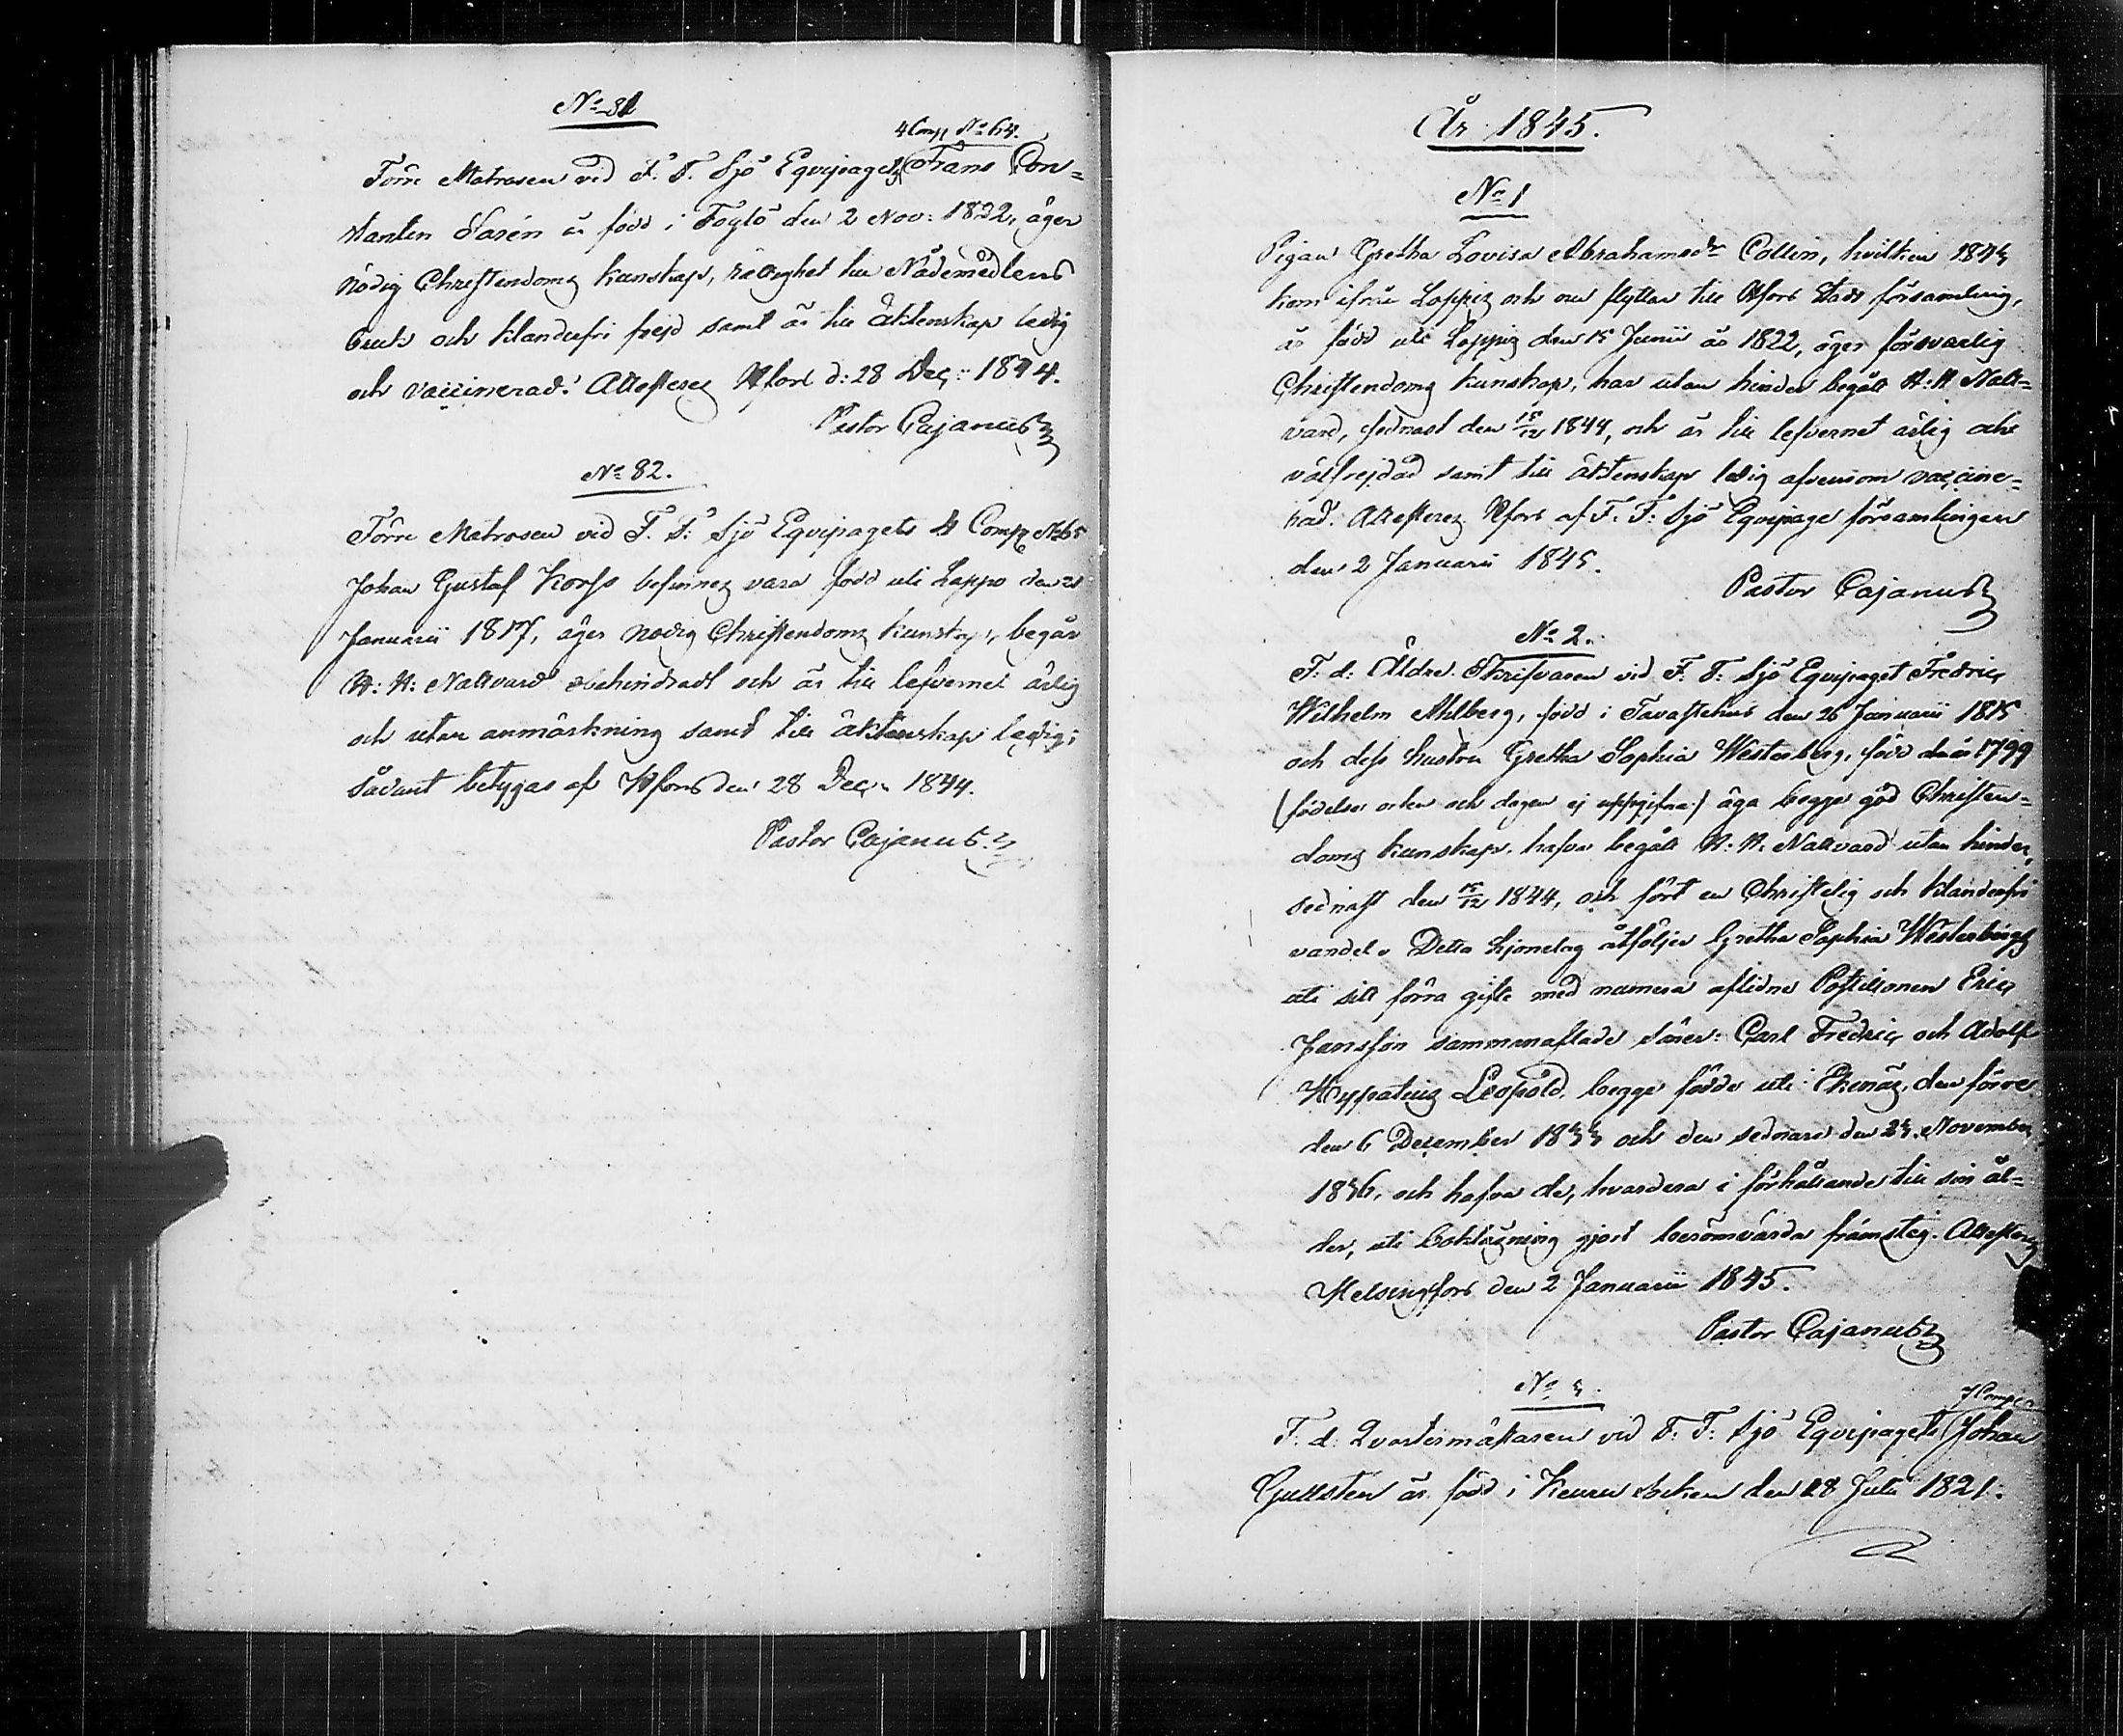 No 81
4 Comp No 64.
Förre Matrosen vid F. F. Sjö Eqvipagets Frans Con=
stantin Sarén är född i Foglö den 2 Nov: 1822, äger
nödig Christendoms kunskap, rättighet till Nådemedlens
bruk och klanderfri frejd samt är till äktenskap ledig
och vaccinerad. Attesteres Hfors d: 28 Dec: 1844.
Pastor Cajanus
No 82.
Förre Matrosen vid F. F: Sjö Eqvipagets 4 Comp No 65
Johan Gustaf Korss befinnes vara född uti Lappo den 21
Januarii 1817, äger nödig Christendoms kunskap, begår
H: H: Nattvard obehindradt och är till lefvernet ärlig
och utan anmärkning samt till äktenskap ledig;
sådant betygas af Hfors den 28 Dec: 1844.
Pastor Cajanus
År 1845.
No 1
Pigan Gretha Lovisa Abrahamsdr Collin, hvilken 1843
kom ifrån Loppis och nu flyttar till Hfors Stads församling,
är född uti Loppis den 15 Junii år 1822, äger försvarlig
Christendoms kunskap, har utan hinder begått H: H. Natt=
vard, sednast den 15/12 1844, och är till lefvernet ärlig och
välfrejdad samt till äktenskap ledig äfvensom vaccine=
rad. Attesteres Hfors af F. F: Sjö Eqvipage församlingen
den 2 Januarii 1845.
Pastor Cajanus
No 2.
F: d: Äldre Skrifvaren vid F. F: Sjö Eqvipaget Fredric
Wilhelm Ahlberg, född i Tavastehus den 26 Januarii 1815
och dess hustru Gretha Sophia Westerberg, född år 1799
(födelse orten och dagen ej uppgifna) äga begge god Christen=
doms kunskap, hafva begått H. H. Nattvard utan hinder,
sednast den 15/12 1844, och fört en Christelig och klanderfri
vandel. Detta hjonelag åtföljer Gretha Sophia Westerbergs
uti sitt förra gifte med numera aflidne Postillionen Eric
Jansson sammanaflade söner: Carl Fredric och Adolf
Hypatius Leopold, begge födde uti Ekenäs, den förre
den 6 December 1833 och den sednare den 23 November
1836, och hafva de, hvardera i förhållande till sin ål=
der, uti bokläsning gjort berömvärda framsteg. Attesteres
Helsingfors den 2 Januarii 1845.
Pastor Cajanus
No 3.
7 Comp
F. d: Qvartermästaren vid F. F: Sjö Eqvipagets Johan
Gullsten är född i Keuru Socken den 28 Julii 1821.